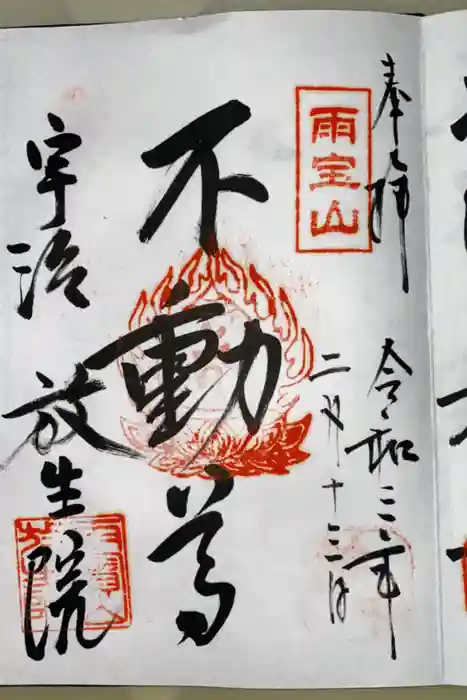 奉拝
令和三年
二月十三日
雨宝山
不動尊
宇治 放生院